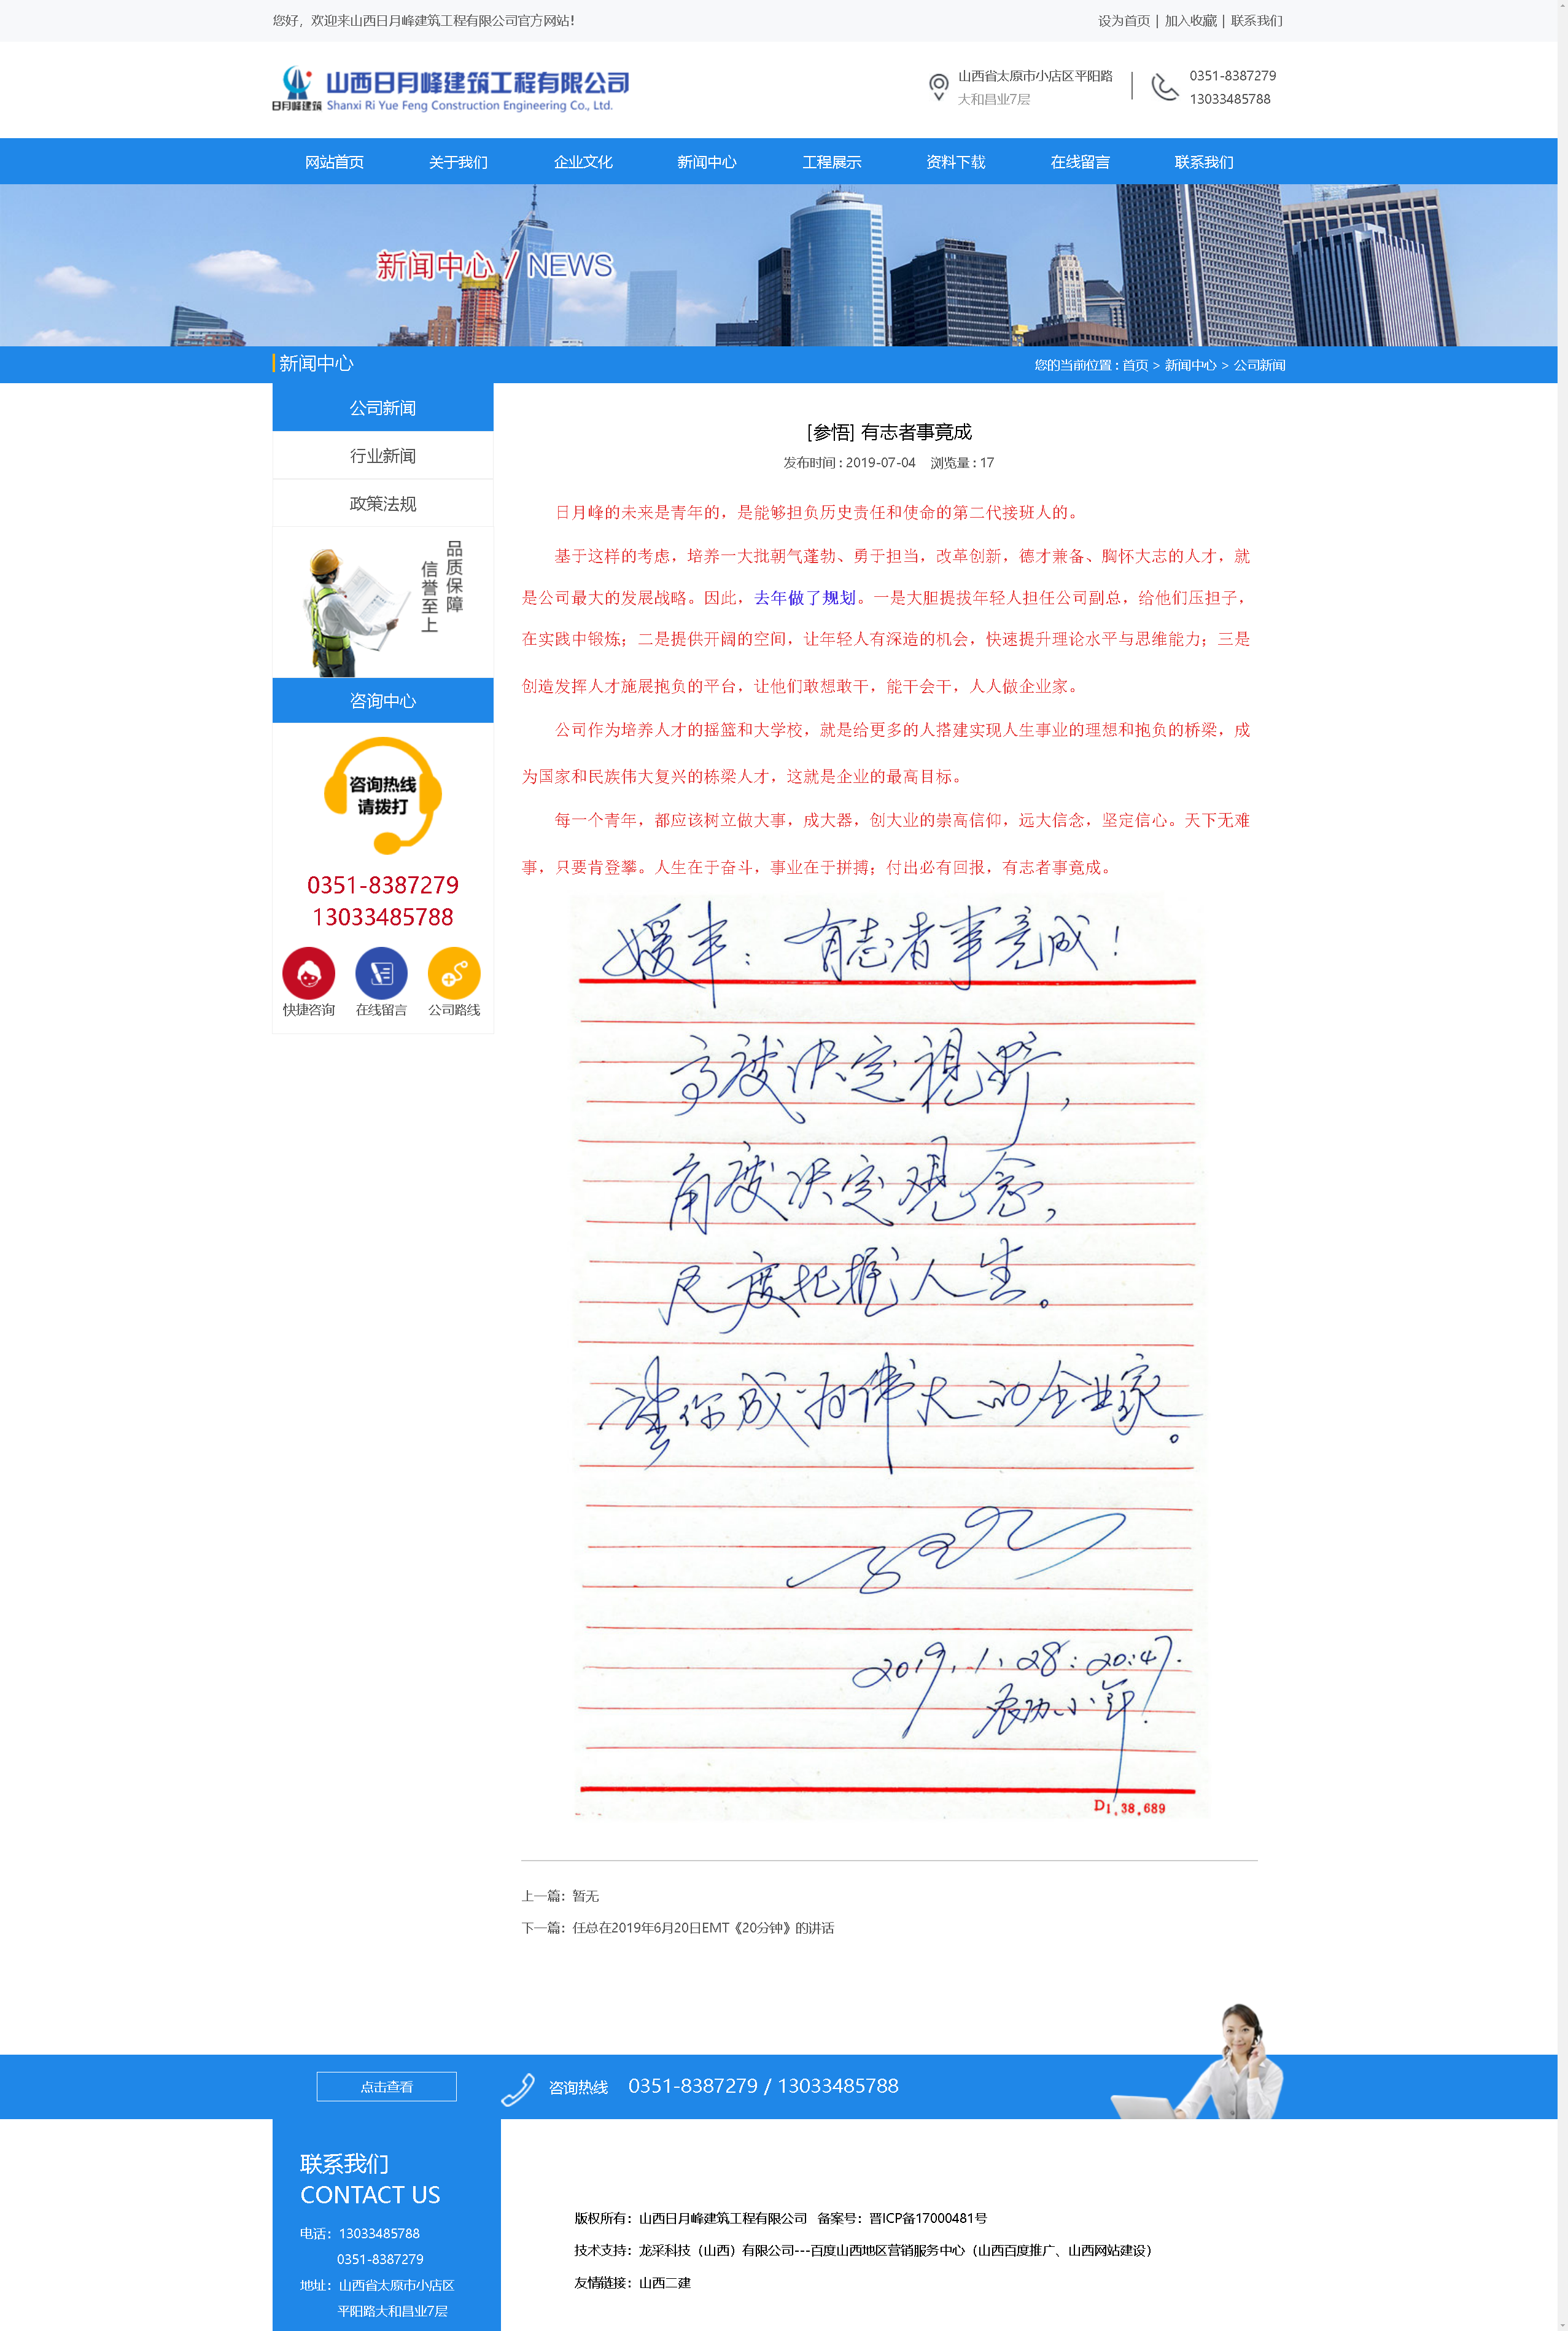 您好，欢迎来山西日月峰建筑工程有限公司官方网站！
设为首页 | 加入收藏 | 联系我们
日月峰建筑
山西日月峰建筑工程有限公司
Shanxi Ri Yue Feng Construction Engineering Co., Ltd.
山西省太原市小店区平阳路
大和昌业7层
0351-8387279
13033485788
网站首页 关于我们 企业文化 新闻中心 工程展示 资料下载 在线留言 联系我们
新闻中心 / NEWS
新闻中心
您的当前位置 : 首页 > 新闻中心 > 公司新闻
公司新闻
行业新闻
政策法规
品质保障
信誉至上
咨询中心
咨询热线
请拨打
0351-8387279
13033485788
快捷咨询 在线留言 公司路线
[参悟] 有志者事竟成
发布时间 : 2019-07-04 浏览量 : 17
日月峰的未来是青年的，是能够担负历史责任和使命的第二代接班人的。
基于这样的考虑，培养一大批朝气蓬勃、勇于担当，改革创新，德才兼备、胸怀大志的人才，就
是公司最大的发展战略。因此，去年做了规划。一是大胆提拔年轻人担任公司副总，给他们压担子，
在实践中锻炼；二是提供开阔的空间，让年轻人有深造的机会，快速提升理论水平与思维能力；三是
创造发挥人才施展抱负的平台，让他们敢想敢干，能干会干，人人做企业家。
公司作为培养人才的摇篮和大学校，就是给更多的人搭建实现人生事业的理想和抱负的桥梁，成
为国家和民族伟大复兴的栋梁人才，这就是企业的最高目标。
每一个青年，都应该树立做大事，成大器，创大业的崇高信仰，远大信念，坚定信心。天下无难
事，只要肯登攀。人生在于奋斗，事业在于拼搏；付出必有回报，有志者事竟成。
有志者事竟成！
高度决定视野，
角度决定观念，
尺度把握人生。
望你成为伟大的企业家。
2019.1.28:20:47.
D1.38.689
上一篇：暂无
下一篇：任总在2019年6月20日EMT《20分钟》的讲话
点击查看
咨询热线 0351-8387279 / 13033485788
联系我们
CONTACT US
电话：13033485788
0351-8387279
地址：山西省太原市小店区
平阳路大和昌业7层
版权所有：山西日月峰建筑工程有限公司 备案号：晋ICP备17000481号
技术支持：龙采科技（山西）有限公司---百度山西地区营销服务中心（山西百度推广、山西网站建设）
友情链接：山西二建